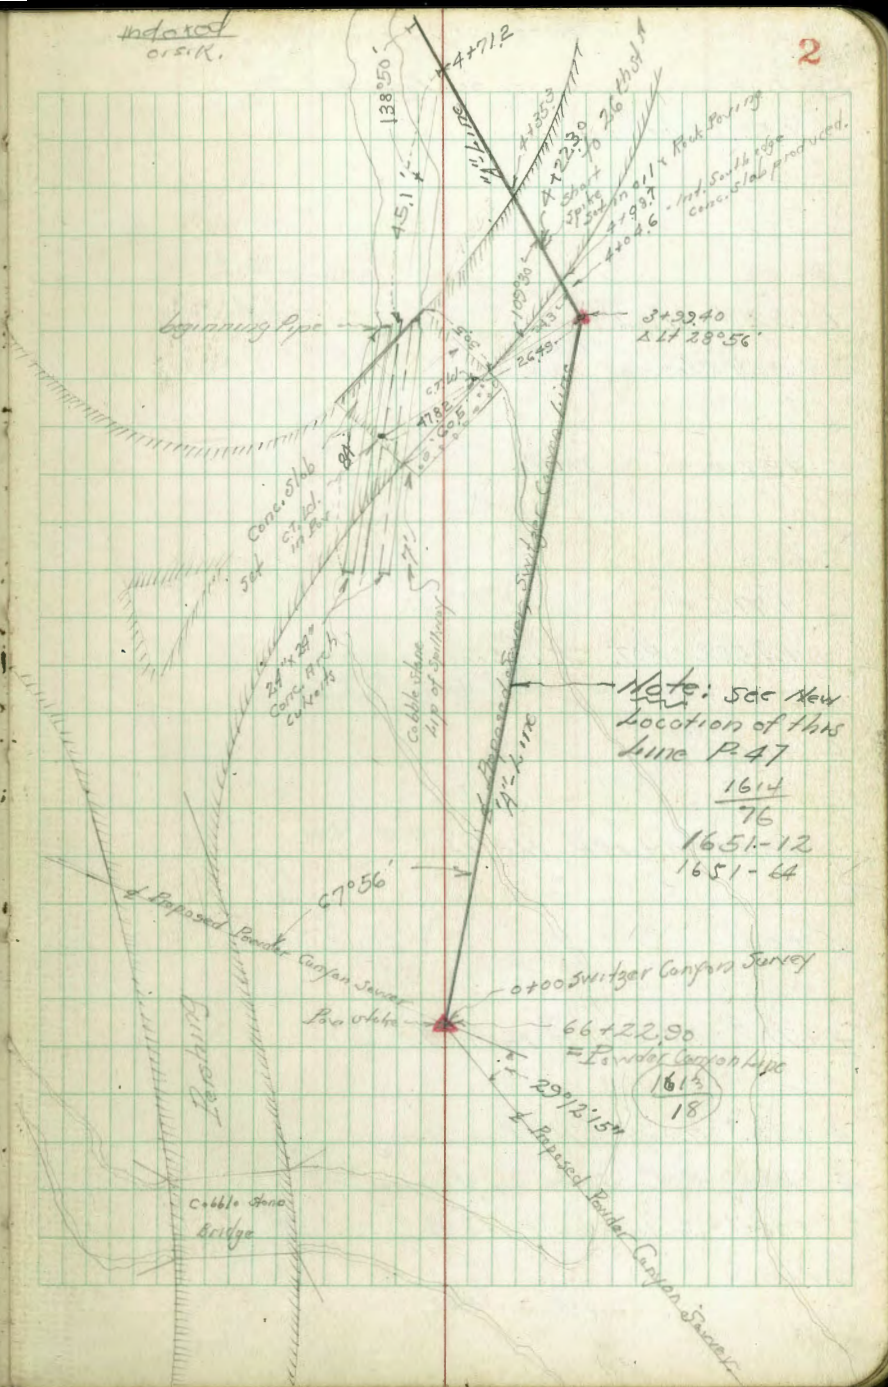 Indexed
O.S.K.
2
4+71.2
138°50'
"A"-Line
4+35.3
4+22.30
to 26th St
Short
Spike
Set in oil & Rock Paving
4+98.7
4+04.6 - Int. South edge
conc. slab produced.
45.1'
109°30'
beginning Pipe
3+99.40
Δ Lt 28°56'
26.49
47.82
60.5
84
Conc. Slab
Set
7'
24" x 24"
Conc. Arch
Culverts
Cobble stone
Lip of Spillway
℄ Proposed Sewer, Switzer Canyon Line
"A"-Line
Note: See New
Location of this
Line P-47
1614
76
1651-12
1651-64
67°56'
℄ Proposed Powder Canyon Sewer
0+00 Switzer Canyon Survey
66+22.90
= Powder Canyon Line
1613
18
29°12'15"
℄ Proposed Powder Canyon Survey
Pershing
Cobble stone
Bridge